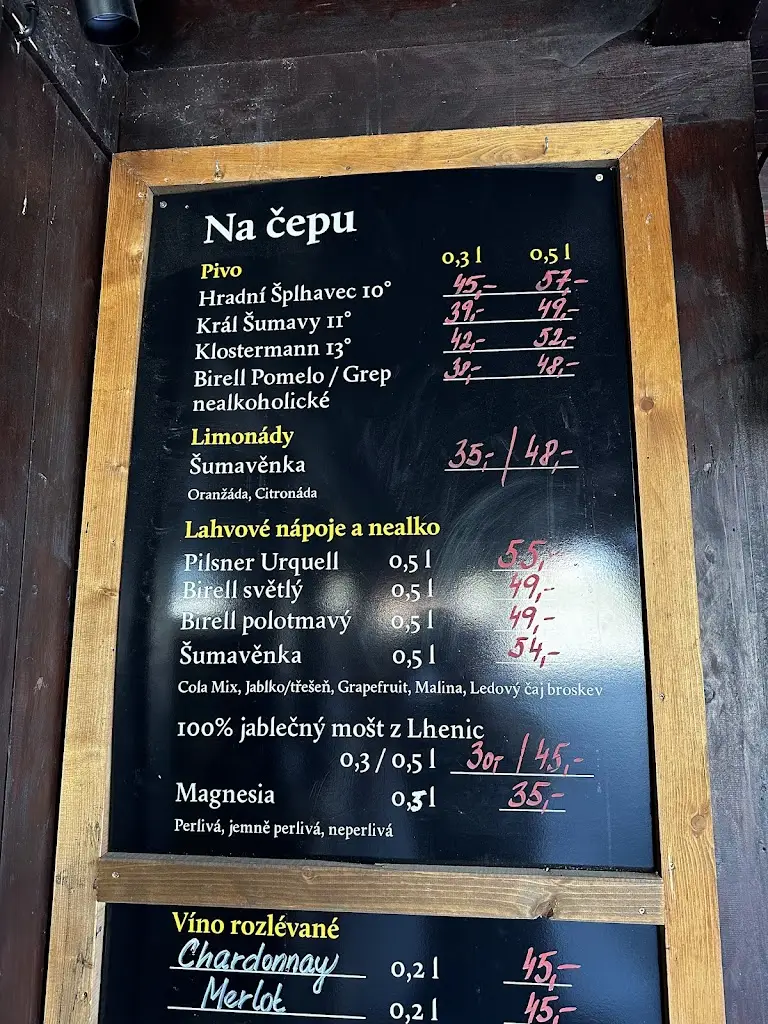 Na čepu
Pivo 0,3 l 0,5 l
Hradní Šplhavec 10° 45,- 57,-
Král Šumavy 11° 39,- 49,-
Klostermann 13° 42,- 52,-
Birell Pomelo / Grep 38,- 48,-
nealkoholické
Limonády
Šumavěnka 35,- / 48,-
Oranžáda, Citronáda
Lahvové nápoje a nealko
Pilsner Urquell 0,5 l 55,-
Birell světlý 0,5 l 49,-
Birell polotmavý 0,5 l 49,-
Šumavěnka 0,5 l 54,-
Cola Mix, Jablko/třešeň, Grapefruit, Malina, Ledový čaj broskev
100% jablečný mošt z Lhenic
0,3 / 0,5 l 30,- / 45,-
Magnesia 0,5 l 35,-
Perlivá, jemně perlivá, neperlivá
Víno rozlévané
Chardonnay 0,2 l 45,-
Merlot 0,2 l 45,-